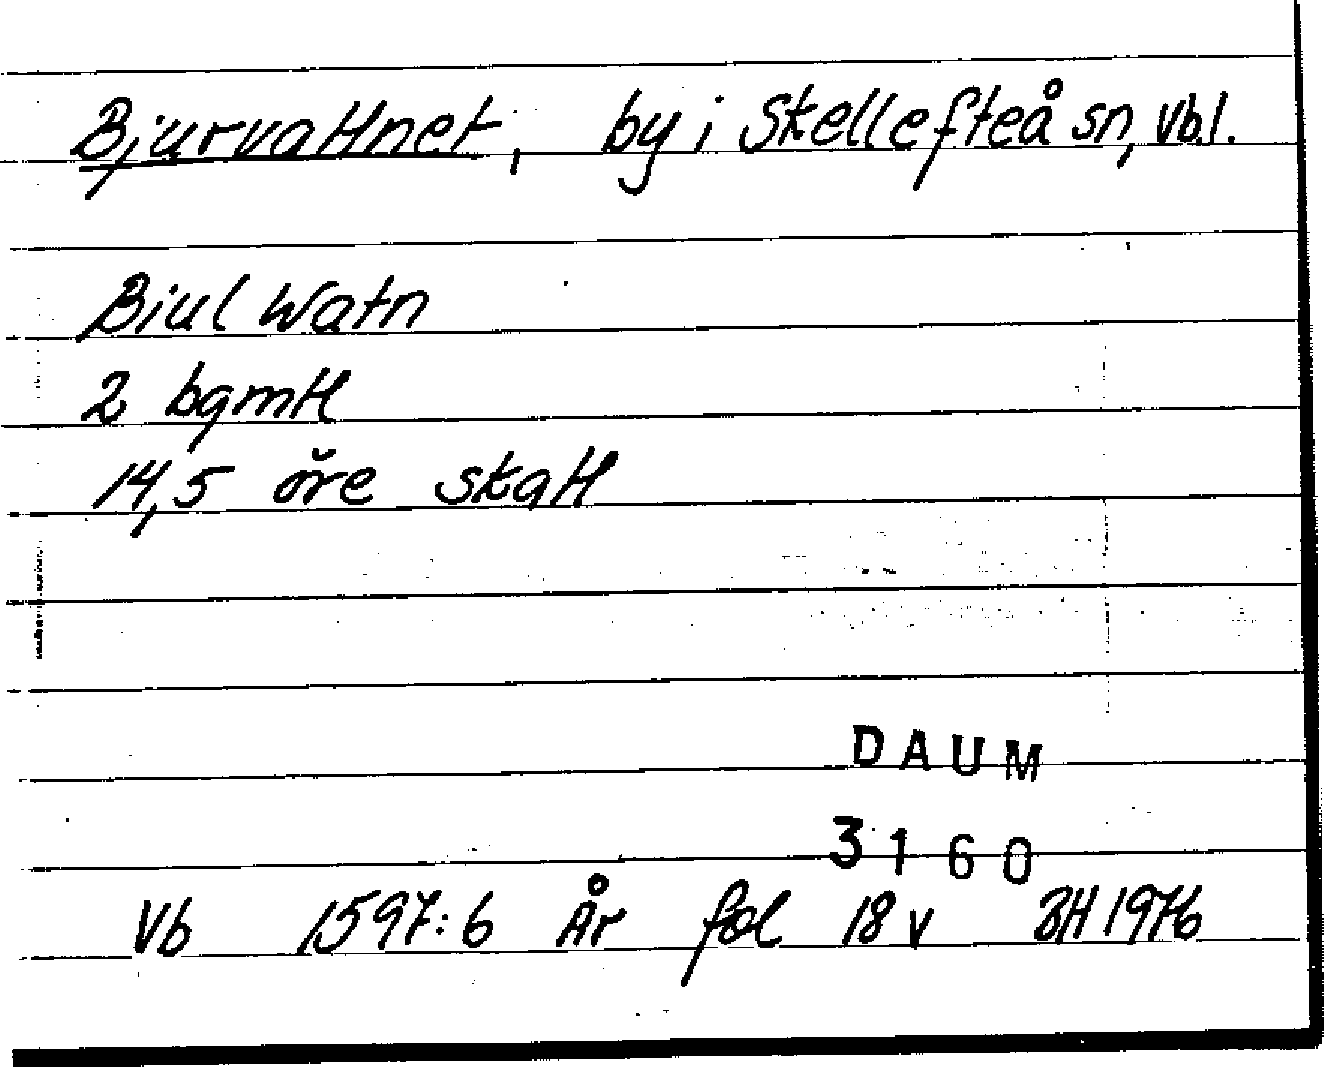 Bjurvattnet, by i Skellefteå sn, Vb.l.
Biul Watn
2 bgmtl
14,5 öre skatt
DAUM
3160
Vb 1597:6 År fol 18 v BH 1976